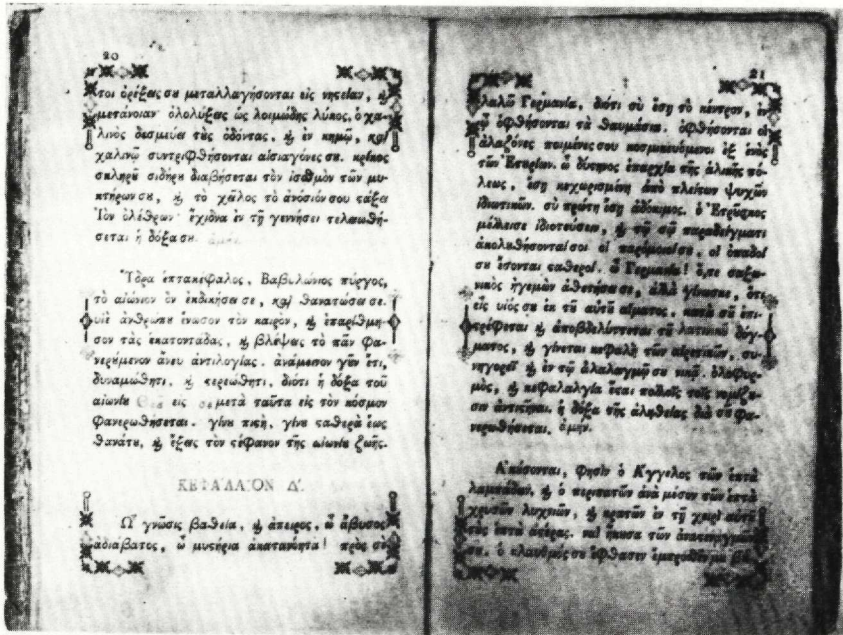 20
τοι ὀρέξεις σου μεταλλαγήσονται εἰς νηςείαν, καὶ
μετάνοιαν· ὀλολύξεις ὡς λοιμώδης λύκος, ὁ χα-
λινὸς δεσμεύσει τοὺς ὀδόντας, καὶ ἐν κημῷ, καὶ
χαλινῷ συντριφθήσονται αἱ σιαγόνες σου. κρίκος
σκληροῦ σιδήρου διαβήσεται τὸν ἰσθμὸν τῶν μυ-
κτήρων σου, καὶ τὸ χεῖλος τὸ ἀνόσιόν σου
ἰὸν ὀλέθριον· ἔχιδνα ἐν τῇ γεννήσει τελειωθή-
σεται ἡ δόξα σου. ἀμήν.
Ὕδρα ἑπτακέφαλος, Βαβυλώνιος πύργος,
τὸ αἰώνιον ὂν ἐκδικήσει σε, καὶ θανατώσει σε.
υἱὲ ἀνθρώπου ἕνωσον τὸν καιρὸν, καὶ ἐπαρίθμη-
σον τὰς ἑκατοντάδας, καὶ βλέψεις τὸ πᾶν φα-
νερούμενον ἄνευ ἀντιλογίας. ἀνάμεινον γοῦν ἔτι,
δυναμώθητι, καὶ διότι ἡ δόξα τοῦ
αἰωνίου Θεοῦ εἰς σε μετὰ ταῦτα εἰς τὸν κόσμον
φανερωθήσεται. γίνου πιςὴ, γίνου ςαθερὰ ἕως
θανάτου, καὶ ἕξεις τὸν ςέφανον τῆς αἰωνίου ζωῆς.
ΚΕΦΑΛΑΙΟΝ Δ΄.
Ὦ γνῶσις βαθεῖα, καὶ ἄπειρος, ὦ ἄβυσος
ἀδιάβατος, ὦ μυςήρια ἀκατανόητα! πρὸς σὲ
21
λαλῶ Γερμανία, διότι σὺ ἔσῃ τὸ κέντρον, ἐν
ᾧ ὀφθήσονται τὰ θαυμάσια. ὀφθήσονται οἱ
ἀλαζόνες ποιμένες σου ἐξ ἑνὸς
τῶν ὦ δύςηνος ἐπαρχία τῆς ἁλικῆς πό-
λεως, ἔσῃ κεχωρισμένη ἀπὸ πλείςων ψυχῶν
ἰδιωτικῶν. σὺ πρώτη ἔσῃ ἀδόκιμος. ὁ Ἐτροῦσκος
καὶ τῇ σῇ παραδείγματι
ἀκολουθήσονταί σοι οἱ παρόμοιοί σου, οἱ ὀπαδοί
σου ἔσονται ςαθεροί. ὦ Γερμανία! ὅτε σαξω-
νικὸς ἡγεμὼν ἀθετήσει σε, ἀλλὰ γίνωσκε, ὅτι
εἷς υἱός σου ἐκ τοῦ αὐτοῦ αἵματος, κατὰ σοῦ ἐπι-
ςρέφεται καὶ ἀποβδελύττεται τοῦ λατινικοῦ δόγ-
ματος, καὶ γίνεται κεφαλὴ τῶν αἱρετικῶν, συ-
νηγορεῖ καὶ ἐν τῷ ἀλαλαγμῷ σου νικᾷ. ὀλοφυρ-
μὸς, καὶ κεφαλαλγία ἔςαι πολλοῖς τοῖς νομίζου-
σιν ἡ δόξα τῆς ἀληθείας διὰ σοῦ φα-
νερωθήσεται. ἀμήν.
Ἀκούσονται, φησὶν ὁ Ἄγγελος τῶν ἑπτὰ
λαμπάδων, καὶ ὁ περιπατῶν ἀνὰ μέσον τῶν ἑπτὰ
χρυσῶν λυχνιῶν, καὶ κρατῶν ἐν τῇ χειρὶ αὐτοῦ
τοὺς ἑπτὰ ἀςέρας. καὶ ἤκουσα τῶν
σου. ὁ κλαυθμός σου ἔφθασεν